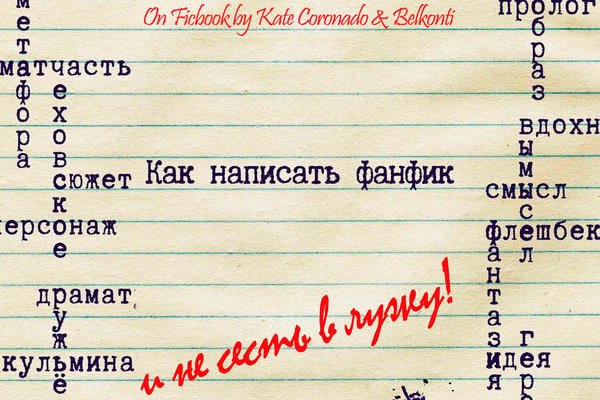 On Ficbook by Kate Coronado & Belkonti
метафора
матчасть
чеховское
сюжет
персонаж
драмат
ружьё
кульмина
Как написать фанфик
и не сесть в лужу!
пролог
образ
вдохн
вымысел
смысл
флешбек
фантазия
идея
гер